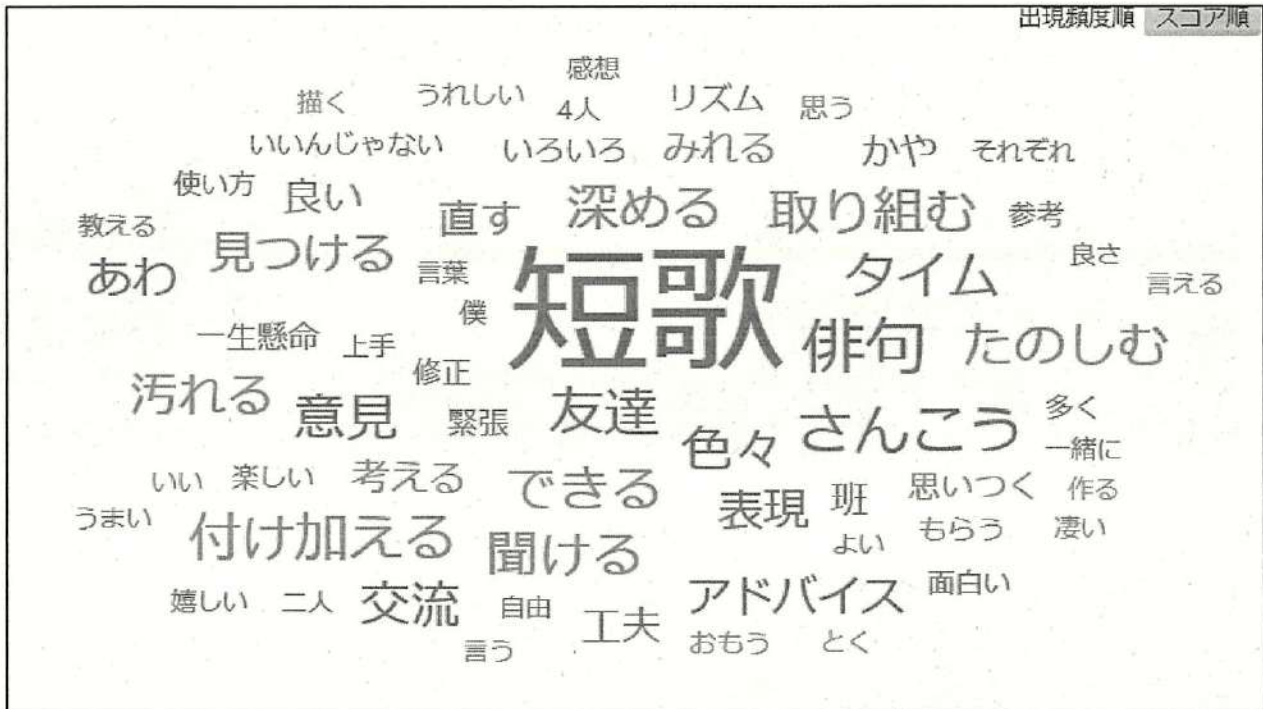 出現頻度順 スコア順
感想
描く うれしい 4人 リズム 思う
いいんじゃない いろいろ みれる かや それぞれ
使い方 良い 直す 深める 取り組む 参考
教える 見つける 言葉 短歌 タイム 良さ
あわ 僕 言える
一生懸命 上手 修正 俳句 たのしむ
汚れる 意見 緊張 友達 色々 さんこう 多く
一緒に
いい 楽しい 考える できる 表現 班 思いつく 作る
うまい 付け加える 聞ける よい もらう 凄い
嬉しい 二人 交流 自由 工夫 アドバイス 面白い
言う おもう とく